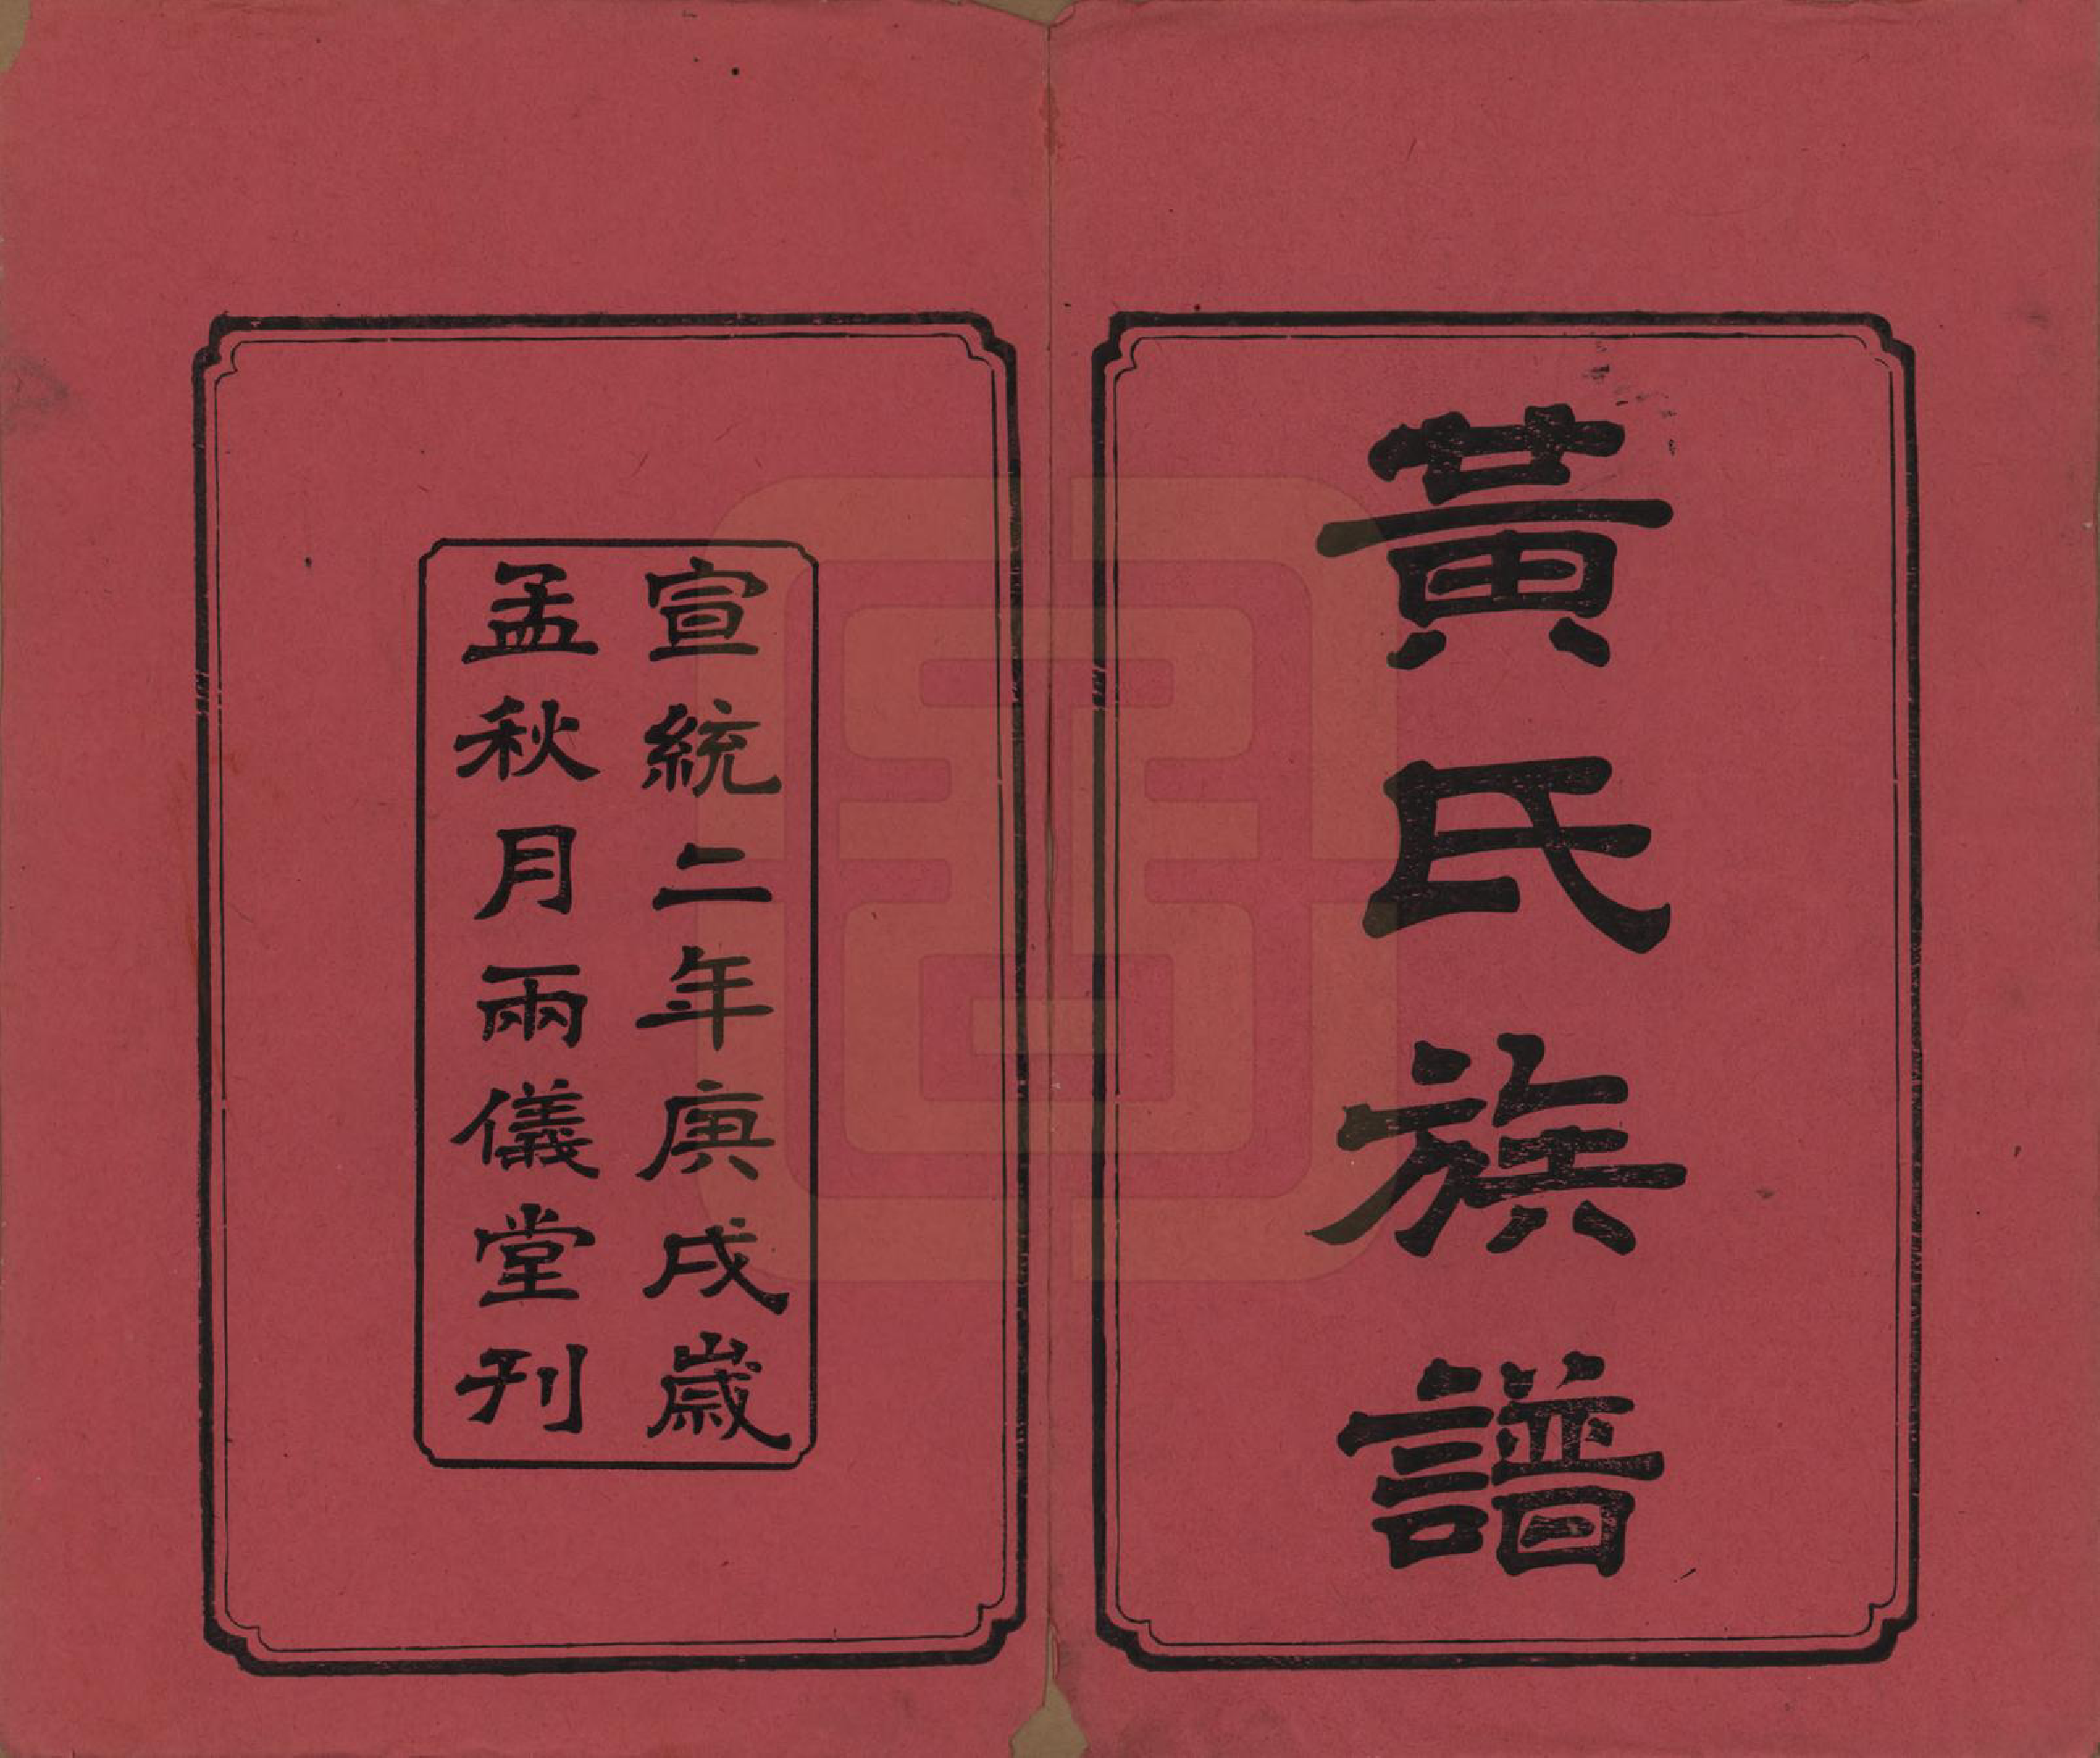 黃氏族譜
宣統二年庚戌歲
孟秋月兩儀堂刊